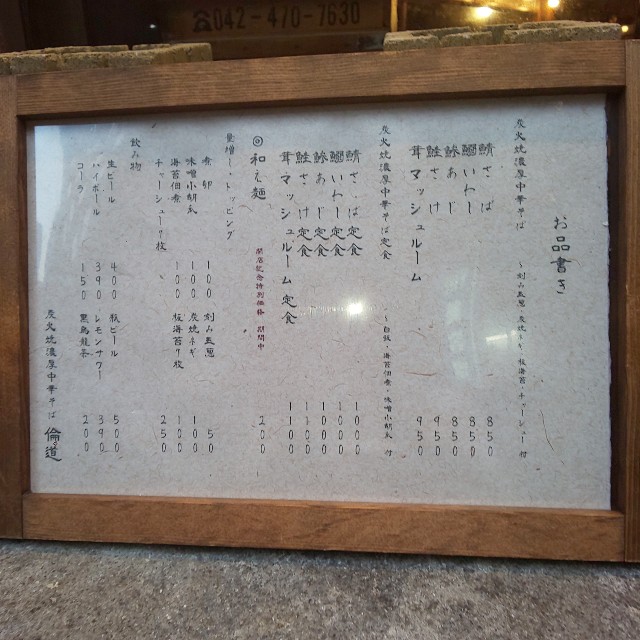 ☎042-470-7630
お品書き
炭火焼濃厚中華そば 〜刻み玉葱・炭焼ネギ・板海苔・チャーシュー付
鯖さば 850
鰯いわし 850
鯵あじ 850
鮭さけ 950
茸マッシュルーム 950
炭火焼濃厚中華そば定食 〜白飯・海苔佃煮・味噌小胡瓜付
鯖さば定食 1000
鰯いわし定食 1000
鯵あじ定食 1000
鮭さけ定食 1100
茸マッシュルーム定食 1100
◎和え麺 開店記念特別価格 期間中 200
量増し・トッピング
煮卵 100 刻み玉葱 50
味噌小胡瓜 100 炭焼ネギ 100
海苔佃煮 100 板海苔7枚 100
チャーシュー7枚 250
飲み物
生ビール 400 瓶ビール 500
ハイボール 390 レモンサワー 390
コーラ 150 黒烏龍茶 200
炭火焼濃厚中華そば 倫道